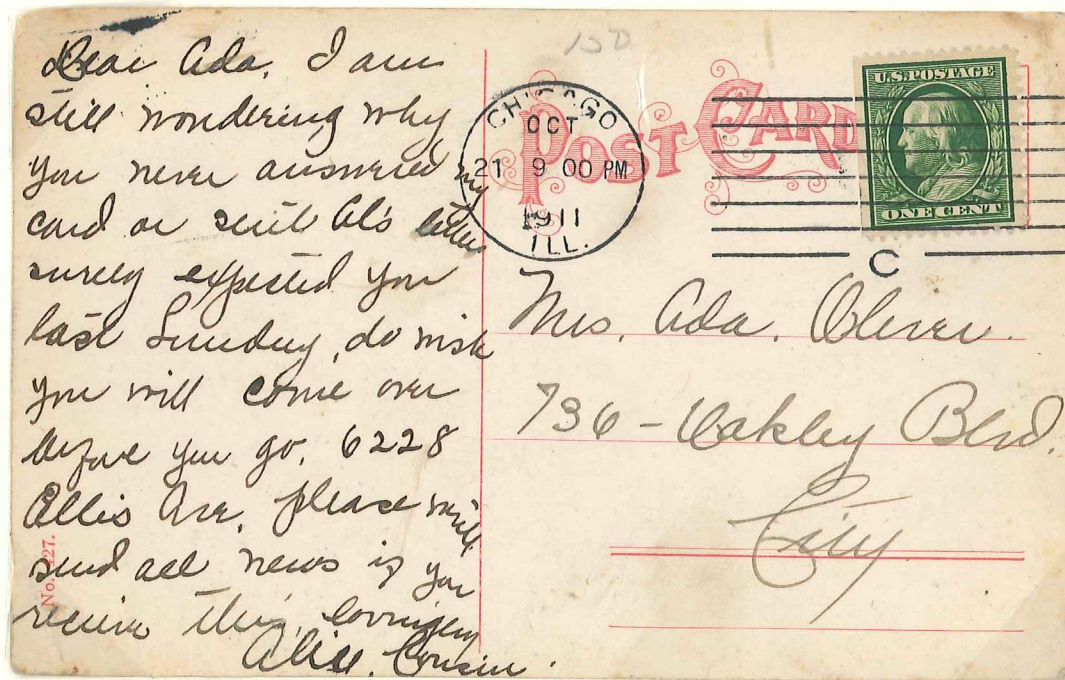 Dear Ada, I am
still wondering why
you never answered my
card or Al's letter
surely expected you
last Sunday, do wish
you will come over
before you go. 6228
Ellis Ave, please
send all news if you
receive this, lovingly
Alice, Cousin.
No. 227.
150
POST CARD
CHICAGO
OCT
21 9 00 PM
1911
ILL.
U.S. POSTAGE
ONE CENT
C
Mrs, Ada, Oliver.
736 - Oakley Blvd.
City